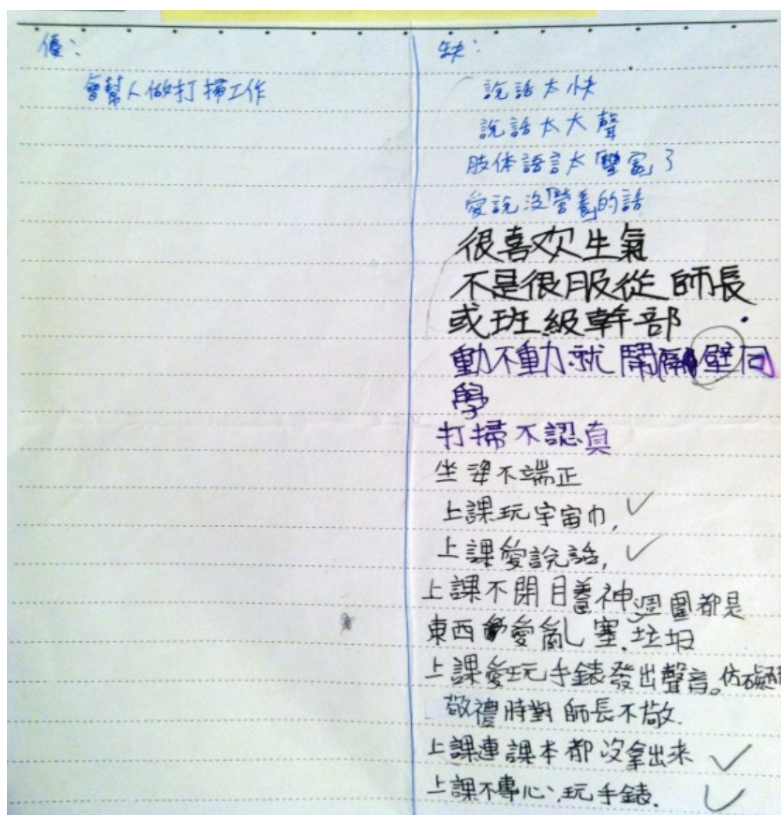 優：
會幫人做打掃工作
缺：
說話太快
說話太大聲
肢体語言太「豐富」了
愛說沒「營養」的話
很喜欢生氣
不是很服從師長
或班級幹部
動不動就鬧隔壁同
學
打掃不認真
坐姿不端正
上課玩宇宙巾,
上課愛說話,
上課不閉目養神週圍都是
東西愛亂塞.垃圾
上課愛玩手錶發出聲音。
敬禮時對師長不敬.
上課連課本都沒拿出來
上課不專心、玩手錶.